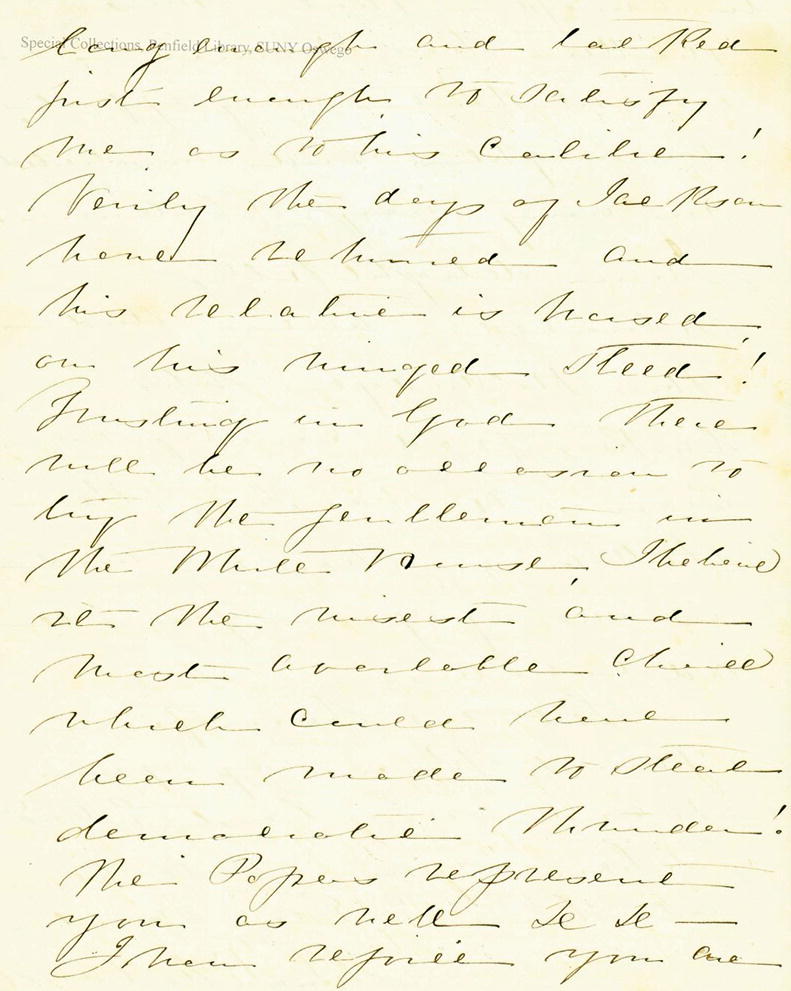 Special Collections, Penfield Library, SUNY Oswego
long enough and talked
just enough to satisfy
me as to his calibre!
Verily the days of Jackson
have returned and
his relative is horsed,
on his winged Steed!
Trusting in God there
will be no occasion to
try the gentleman in
the White House, I believe
it the wisest and
most available Choice
which could have
been made to steal
democratic Thunder!
The Papers represent
you as well
I rejoice you are